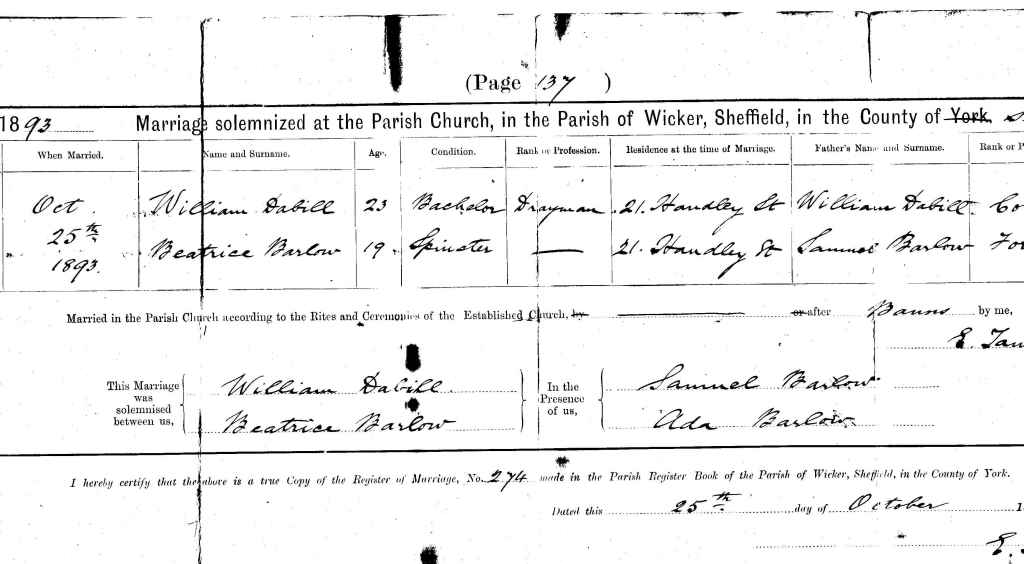 (Page 137 )
1893 Marriage solemnized at the Parish Church, in the Parish of Wicker, Sheffield, in the County of York.
When Married. Name and Surname. Age. Condition. Rank or Profession. Residence at the time of Marriage. Father's Name and Surname. Rank or P
Oct. William Dabill 23 Bachelor Drayman 21. Handley St William Dabill. Co
25th
" Beatrice Barlow 19. Spinster — 21. Handley St Samuel Barlow For
1893.
Married in the Parish Church according to the Rites and Ceremonies of the Established Church, by or after Banns by me,
E. Tan
This Marriage was solemnised between us,
William Dabill
Beatrice Barlow
In the Presence of us,
Samuel Barlow
Ada Barlow
I hereby certify that the above is a true Copy of the Register of Marriage, No. 274 made in the Parish Register Book of the Parish of Wicker, Sheffield, in the County of York.
Dated this 25th day of October 1
E.